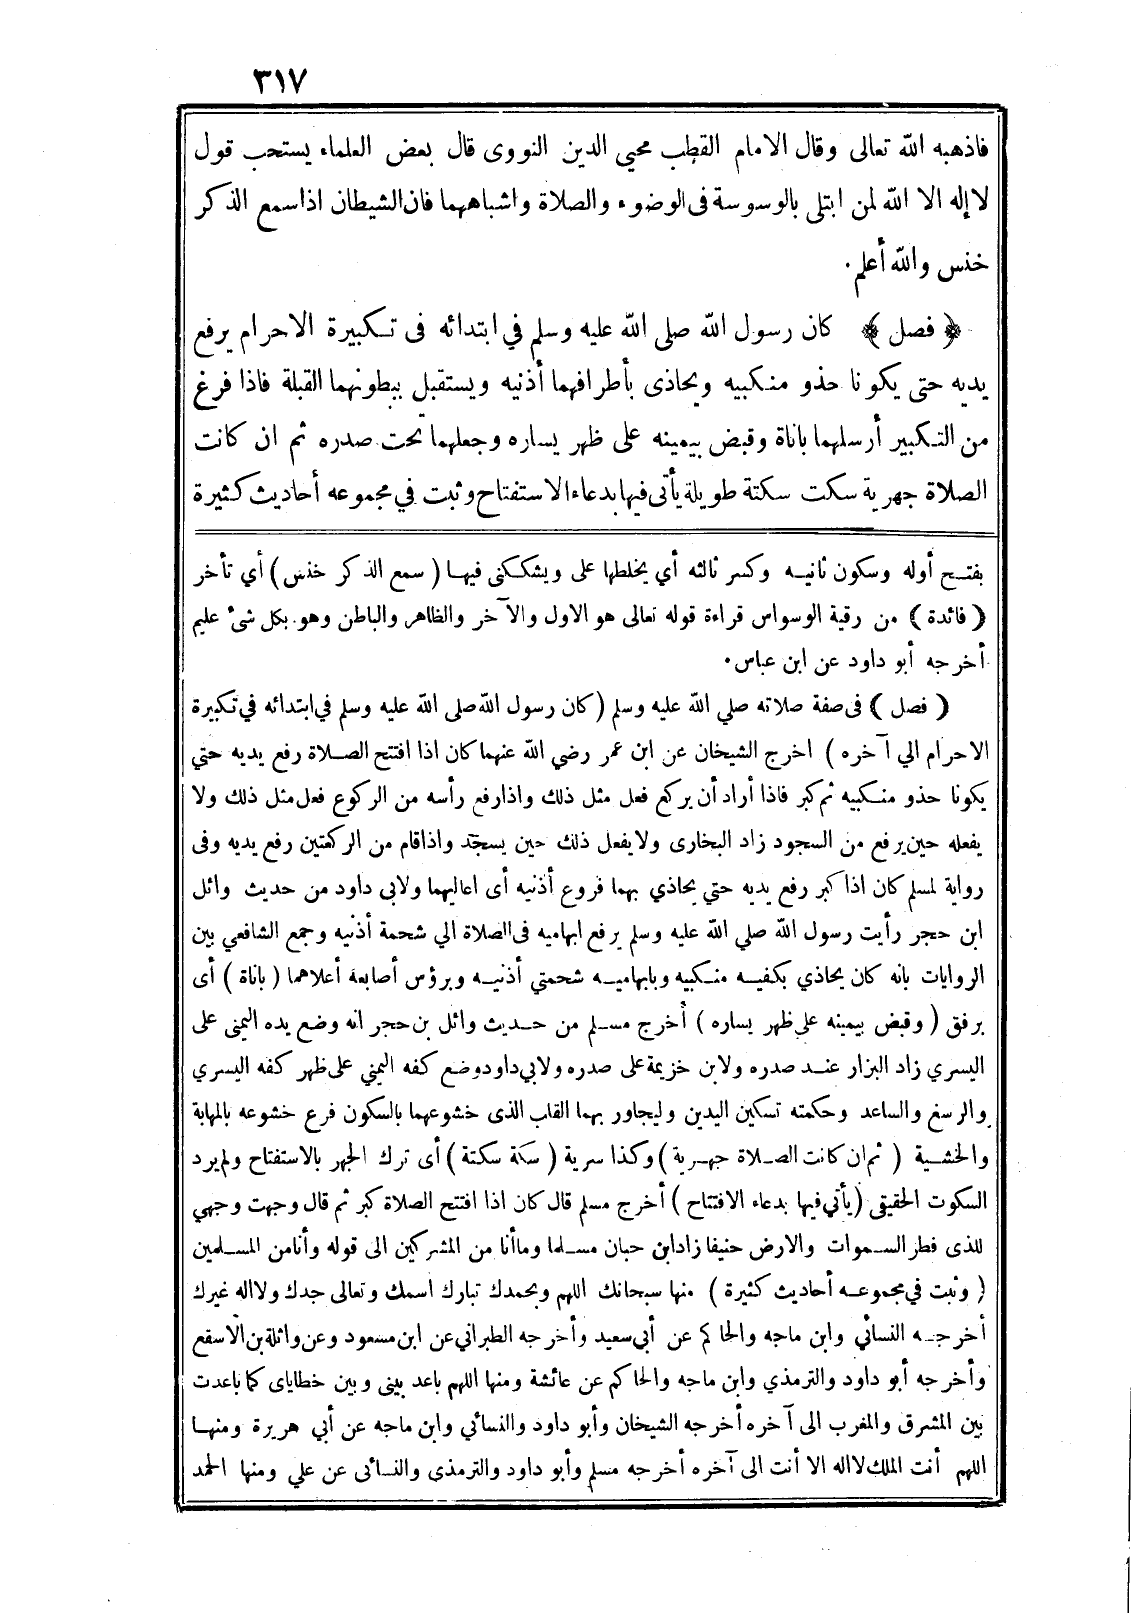 ٣١٧
فاذهبه الله تعالى وقال الامام القطب محيي الدين النووى قال بعض العلماء يستحب قول
لا إله الا الله لمن ابتلى بالوسوسة فى الوضوء والصلاة واشباههما فان الشيطان اذا سمع الذكر
خنس والله أعلم ٠
﴿ فصل ﴾ كان رسول الله صلى الله عليه وسلم في ابتدائه فى تكبيرة الاحرام يرفع
يديه حتى يكونا حذو منكبيه ويحاذى بأطرافهما أذنيه ويستقبل ببطونهما القبلة فاذا فرغ
من التكبير أرسلهما باناة وقبض بيمينه على ظهر يساره وجعلهما تحت صدره ثم ان كانت
الصلاة جهرية سكت سكتة طويلة يأتى فيها بدعاء الاستفتاح وثبت في مجموعه أحاديث كثيرة
بفتح أوله وسكون ثانيه وكسر ثالثه أي يخلطها على ويشككنى فيها ( سمع الذكر خنس ) أي تأخر
( فائدة ) من رقية الوسواس قراءة قوله تعالى هو الاول والآخر والظاهر والباطن وهو بكل شئ عليم
أخرجه أبو داود عن ابن عباس ٠
( فصل ) فى صفة صلاته صلي الله عليه وسلم ( كان رسول الله صلى الله عليه وسلم في ابتدائه في تكبيرة
الاحرام الي آخره ) اخرج الشيخان عن ابن عمر رضي الله عنهما كان اذا افتتح الصلاة رفع يديه حتي
يكونا حذو منكبيه ثم كبر فاذا أراد أن يركع فعل مثل ذلك واذا رفع رأسه من الركوع فعل مثل ذلك ولا
يفعله حين يرفع من السجود زاد البخارى ولا يفعل ذلك حين يسجد واذا قام من الركعتين رفع يديه وفى
رواية لمسلم كان اذا كبر رفع يديه حتي يحاذي بهما فروع أذنيه أى اعاليهما ولابى داود من حديث وائل
ابن حجر رأيت رسول الله صلي الله عليه وسلم يرفع ابهاميه فى الصلاة الي شحمة أذنيه وجمع الشافعي بين
الروايات بانه كان يحاذي بكفيه منكبيه وبابهاميه شحمتي أذنيه وبرؤس أصابعه أعلاهما ( باناة ) أى
برفق ( وقبض بيمينه علي ظهر يساره ) أخرج مسلم من حديث وائل بن حجر انه وضع يده اليمنى على
اليسري زاد البزار عند صدره ولابن خزيمة على صدره ولابي داود وضع كفه اليمني على ظهر كفه اليسري
والرسغ والساعد وحكمته تسكين اليدين وليجاور بهما القلب الذى خشوعهما بالسكون فرع خشوعه بالمهابة
والخشية ( ثم ان كانت الصلاة جهرية ) وكذا سرية ( سكت سكتة ) أى ترك الجهر بالاستفتاح ولم يرد
السكوت الحقيقى ( يأتي فيها بدعاء الافتتاح ) أخرج مسلم قال كان اذا افتتح الصلاة كبر ثم قال وجهت وجهي
للذى فطر السموات والارض حنيفا زاد ابن حبان مسلما وما أنا من المشركين الى قوله وأنا من المسلمين
( وثبت في مجموعه أحاديث كثيرة ) منها سبحانك اللهم وبحمدك تبارك اسمك وتعالى جدك ولا اله غيرك
أخرجه النسائي وابن ماجه والحاكم عن أبي سعيد وأخرجه الطبراني عن ابن مسعود وعن واثلة بن الاسقع
وأخرجه أبو داود والترمذي وابن ماجه والحاكم عن عائشة ومنها اللهم باعد بينى وبين خطاياى كما باعدت
بين المشرق والمغرب الى آخره أخرجه الشيخان وأبو داود والنسائي وابن ماجه عن أبي هريرة ومنها
اللهم أنت الملك لا اله الا أنت الى آخره أخرجه مسلم وأبو داود والترمذى والنسائى عن علي ومنها الحمد